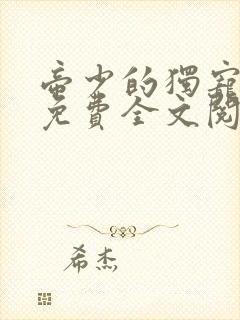 帝少的獨寵
免費全文閱
希杰